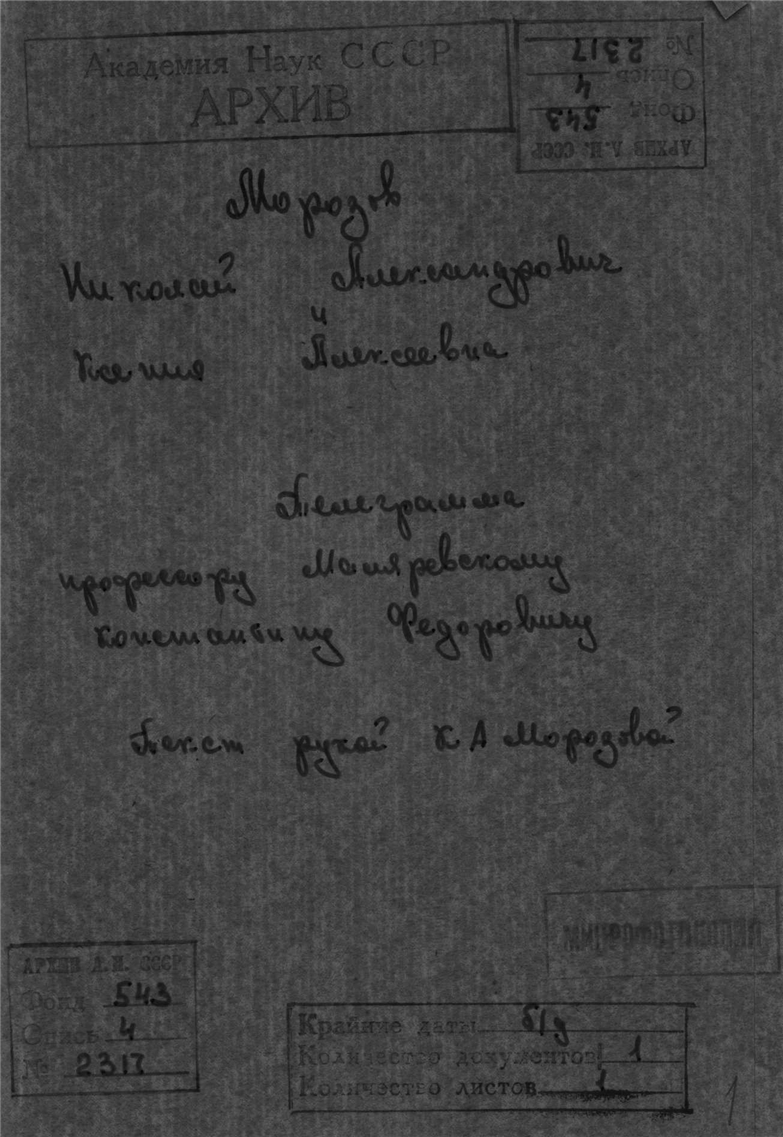 Академия Наук СССР
АРХИВ
АРХИВ А.Н. СССР
Фонд 543
Опись 4
№ 2317
Морозов
Николай Александрович
и
Ксения Алексеевна
Телеграмма
профессору Маляревскому
Константину Федоровичу
Текст рукой К А Морозовой
МИКРОФОТОКОПИЯ
АРХИВ А.Н. СССР
Фонд 543
Опись 4
№ 2317
Крайние даты б/д
Количество документов 1
Количество листов 1
1